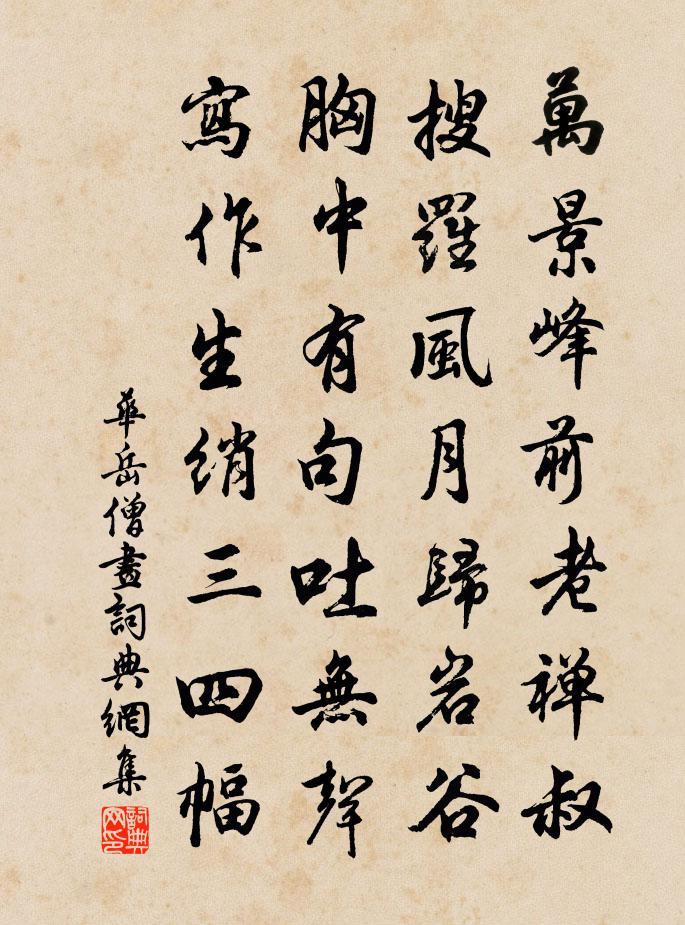 萬景峰前老禅叔
搜羅風月歸岩谷
胸中有句吐無聲
寫作生綃三四幅
華岳僧畫詞典網集
詞典网印